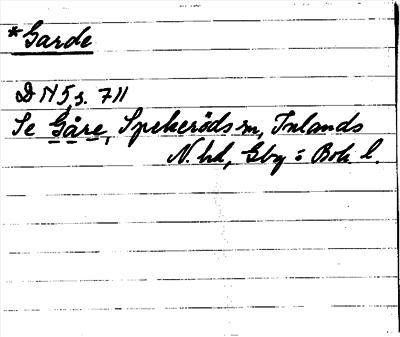 *Garde
DN 5, s. 711
Se Gåre, Spekeröds sn, Inlands
N. hd, Gby : Boh l.